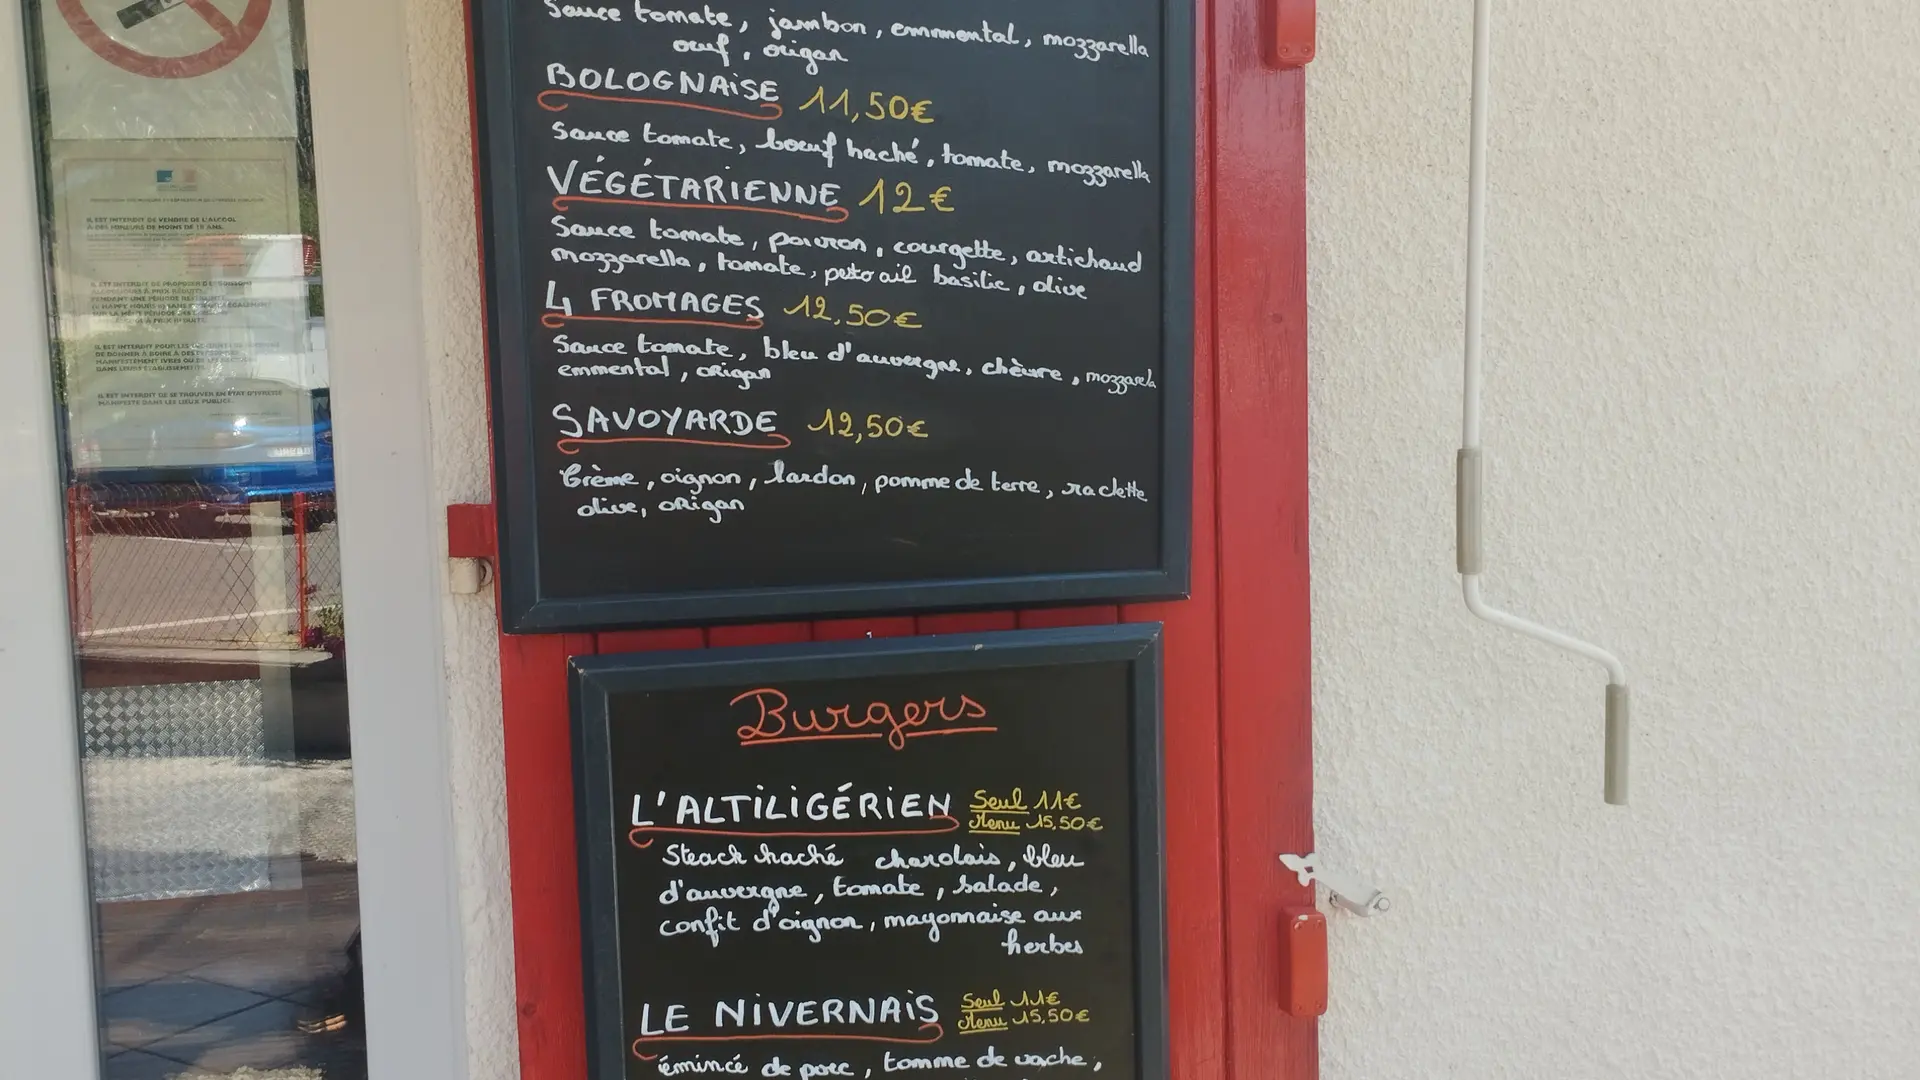 Sauce tomate, jambon, emmental, mozzarella
œuf, origan
BOLOGNAiSE 11,50€
Sauce tomate, bœuf haché, tomate, mozzarella
VÉGÉTARIENNE 12€
Sauce tomate, poivron, courgette, artichaud
mozzarella, tomate, pesto ail basilic, olive
4 FROMAGES 12,50€
Sauce tomate, bleu d'auvergne, chèvre, mozzarela
emmental, origan
SAVOYARDE 12,50€
Crème, oignon, lardon, pomme de terre, raclette
olive, origan
Burgers
L'ALTiLiGÉRiEN Seul 11€
Menu 15,50€
Steack haché charolais, bleu
d'auvergne, tomate, salade,
confit d'oignon, mayonnaise aux
herbes
LE NiVERNAiS Seul 11€
Menu 15,50€
émincé de porc, tomme de vache,
IL EST INTERDIT DE VENDRE DE L'ALCOOL
À DES MINEURS DE MOINS DE 18 ANS.
IL EST INTERDIT DE SE TROUVER EN ÉTAT D'IVRESSE
MANIFESTE DANS LES LIEUX PUBLICS.